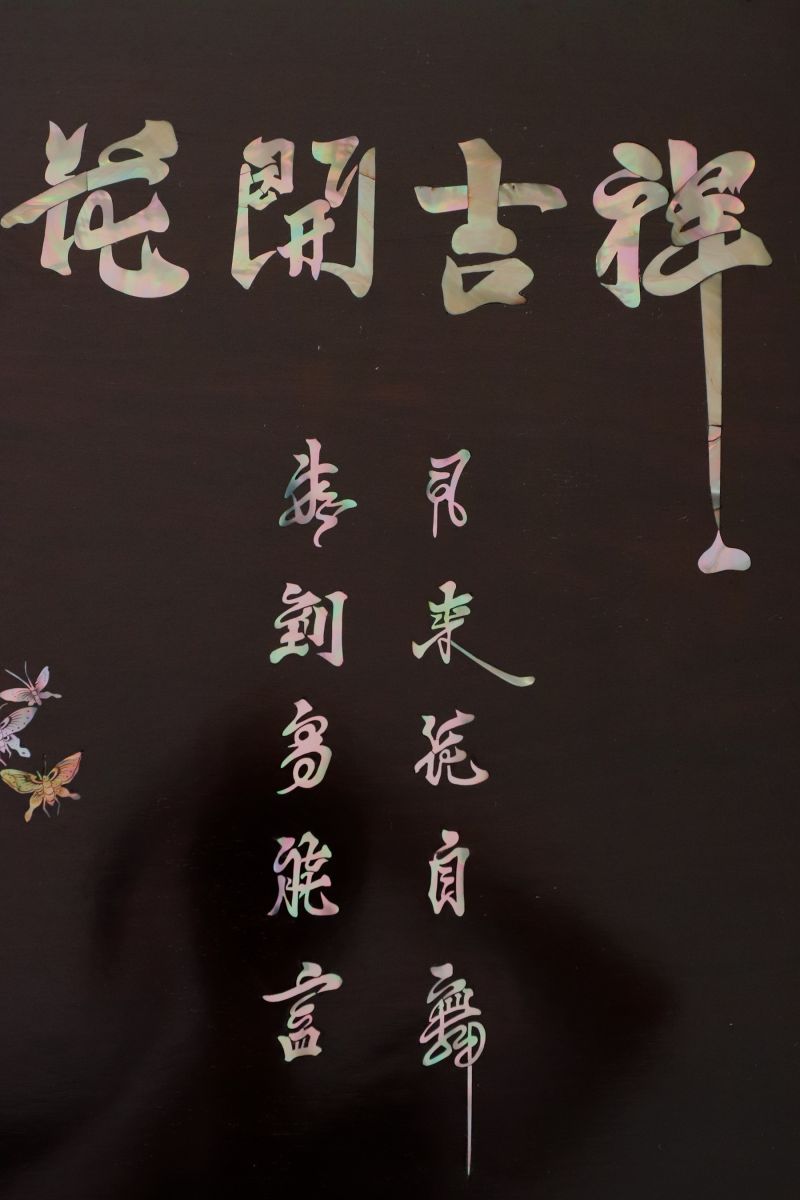 花開吉祥
風来花自舞
春到鳥能言